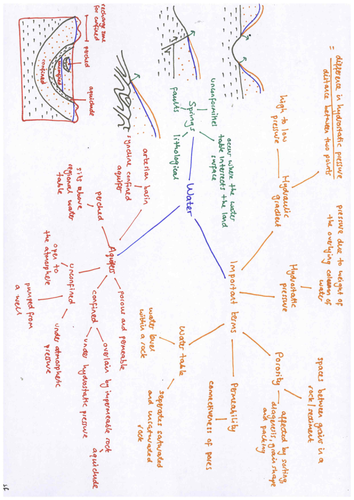 Water
Important terms
Hydraulic
gradient
high to low
pressure
= difference in hydrostatic pressure
distance between two points
Hydrostatic
pressure
pressure due to weight of
the overlying column of
water
Porosity
spaces between grains in a
rock / sediment
affected by sorting
diagenesis, grain shape
and packing
Permeability
connectiveness of pores
Water table
water level
within a rock
seperates saturated
and unsaturated
rock
Aquifers
porous and permeable
confined
overlain by impermeable rock
aquiclude
under hydrostatic pressure
unconfined
open to
the atmosphere
under atmospheric
pressure
pumped from
a well
perched
sits above
regional water
table
artesian basin
syncline confined
aquifer
Springs
occur where the water
table intersects the land
surface
lithological
faults
unconformities
recharge zone
for confined
perched
aquiclude
confined